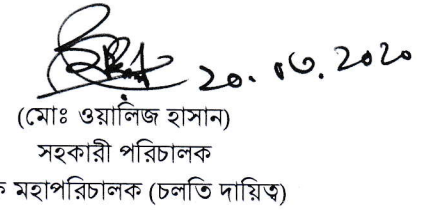 20.10.2020
(মোঃ ওয়ালিজ হাসান)
সহকারী পরিচালক
মহাপরিচালক (চলতি দায়িত্ব)